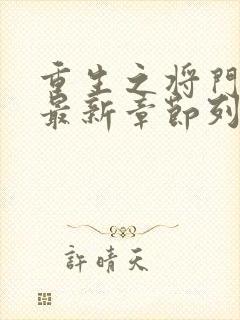 重生之将門
最新章節列
許晴天